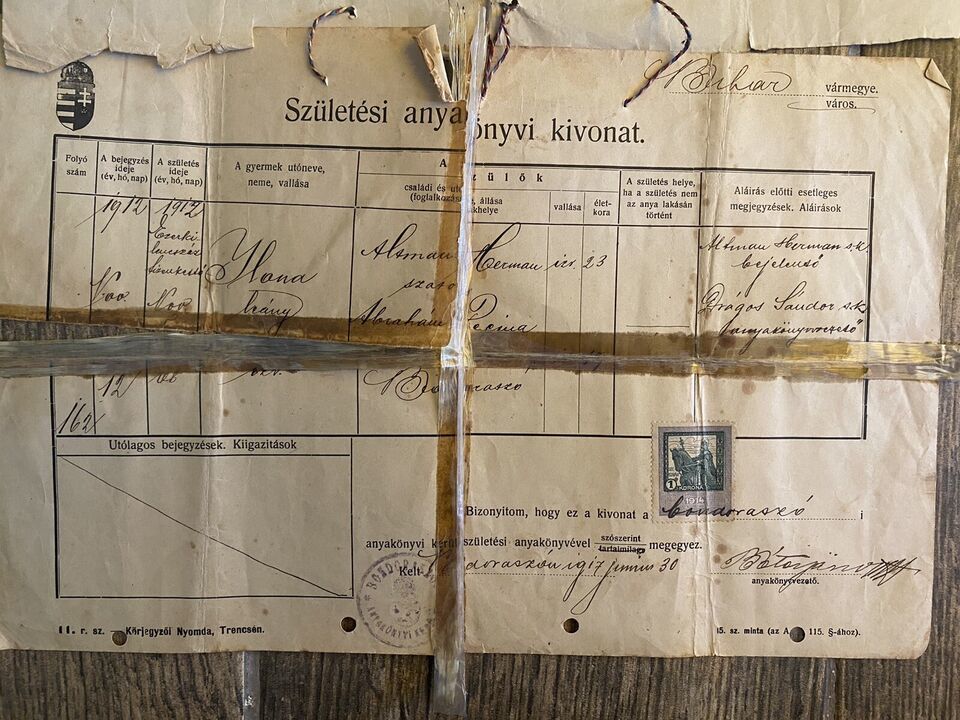 Bihar vármegye.
város.
Születési anyakönyvi kivonat.
Folyó szám
A bejegyzés ideje (év, hó, nap)
A születés ideje (év, hó, nap)
A gyermek utóneve, neme, vallása
A
zülők
családi és ut
(foglalkozás
, állása
akhelye
vallása
élet-
kora
A születés helye, ha a születés nem az anya lakásán történt
Aláírás előtti esetleges megjegyzések. Aláírások
1912 1912
Ilona
leány
Altman Herman izr. 23
szabó
Ábrahám
Altman Herman s.k.
bejelentő
Drágos Sándor s.k.
anyakönyvvezető
Nov Nov
12
162
Utólagos bejegyzések. Kiigazítások
1 KORONA
1914
Bizonyítom, hogy ez a kivonat a Condoraszó i
anyakönyvi kerül születési anyakönyvével szószerint tartalmilag megegyez.
Kelt doraszón 1917 junius 30
anyakönyvezető.
11. r. sz. — Körjegyzői Nyomda, Trencsén.
15. sz. minta (az A 115. §-ához).